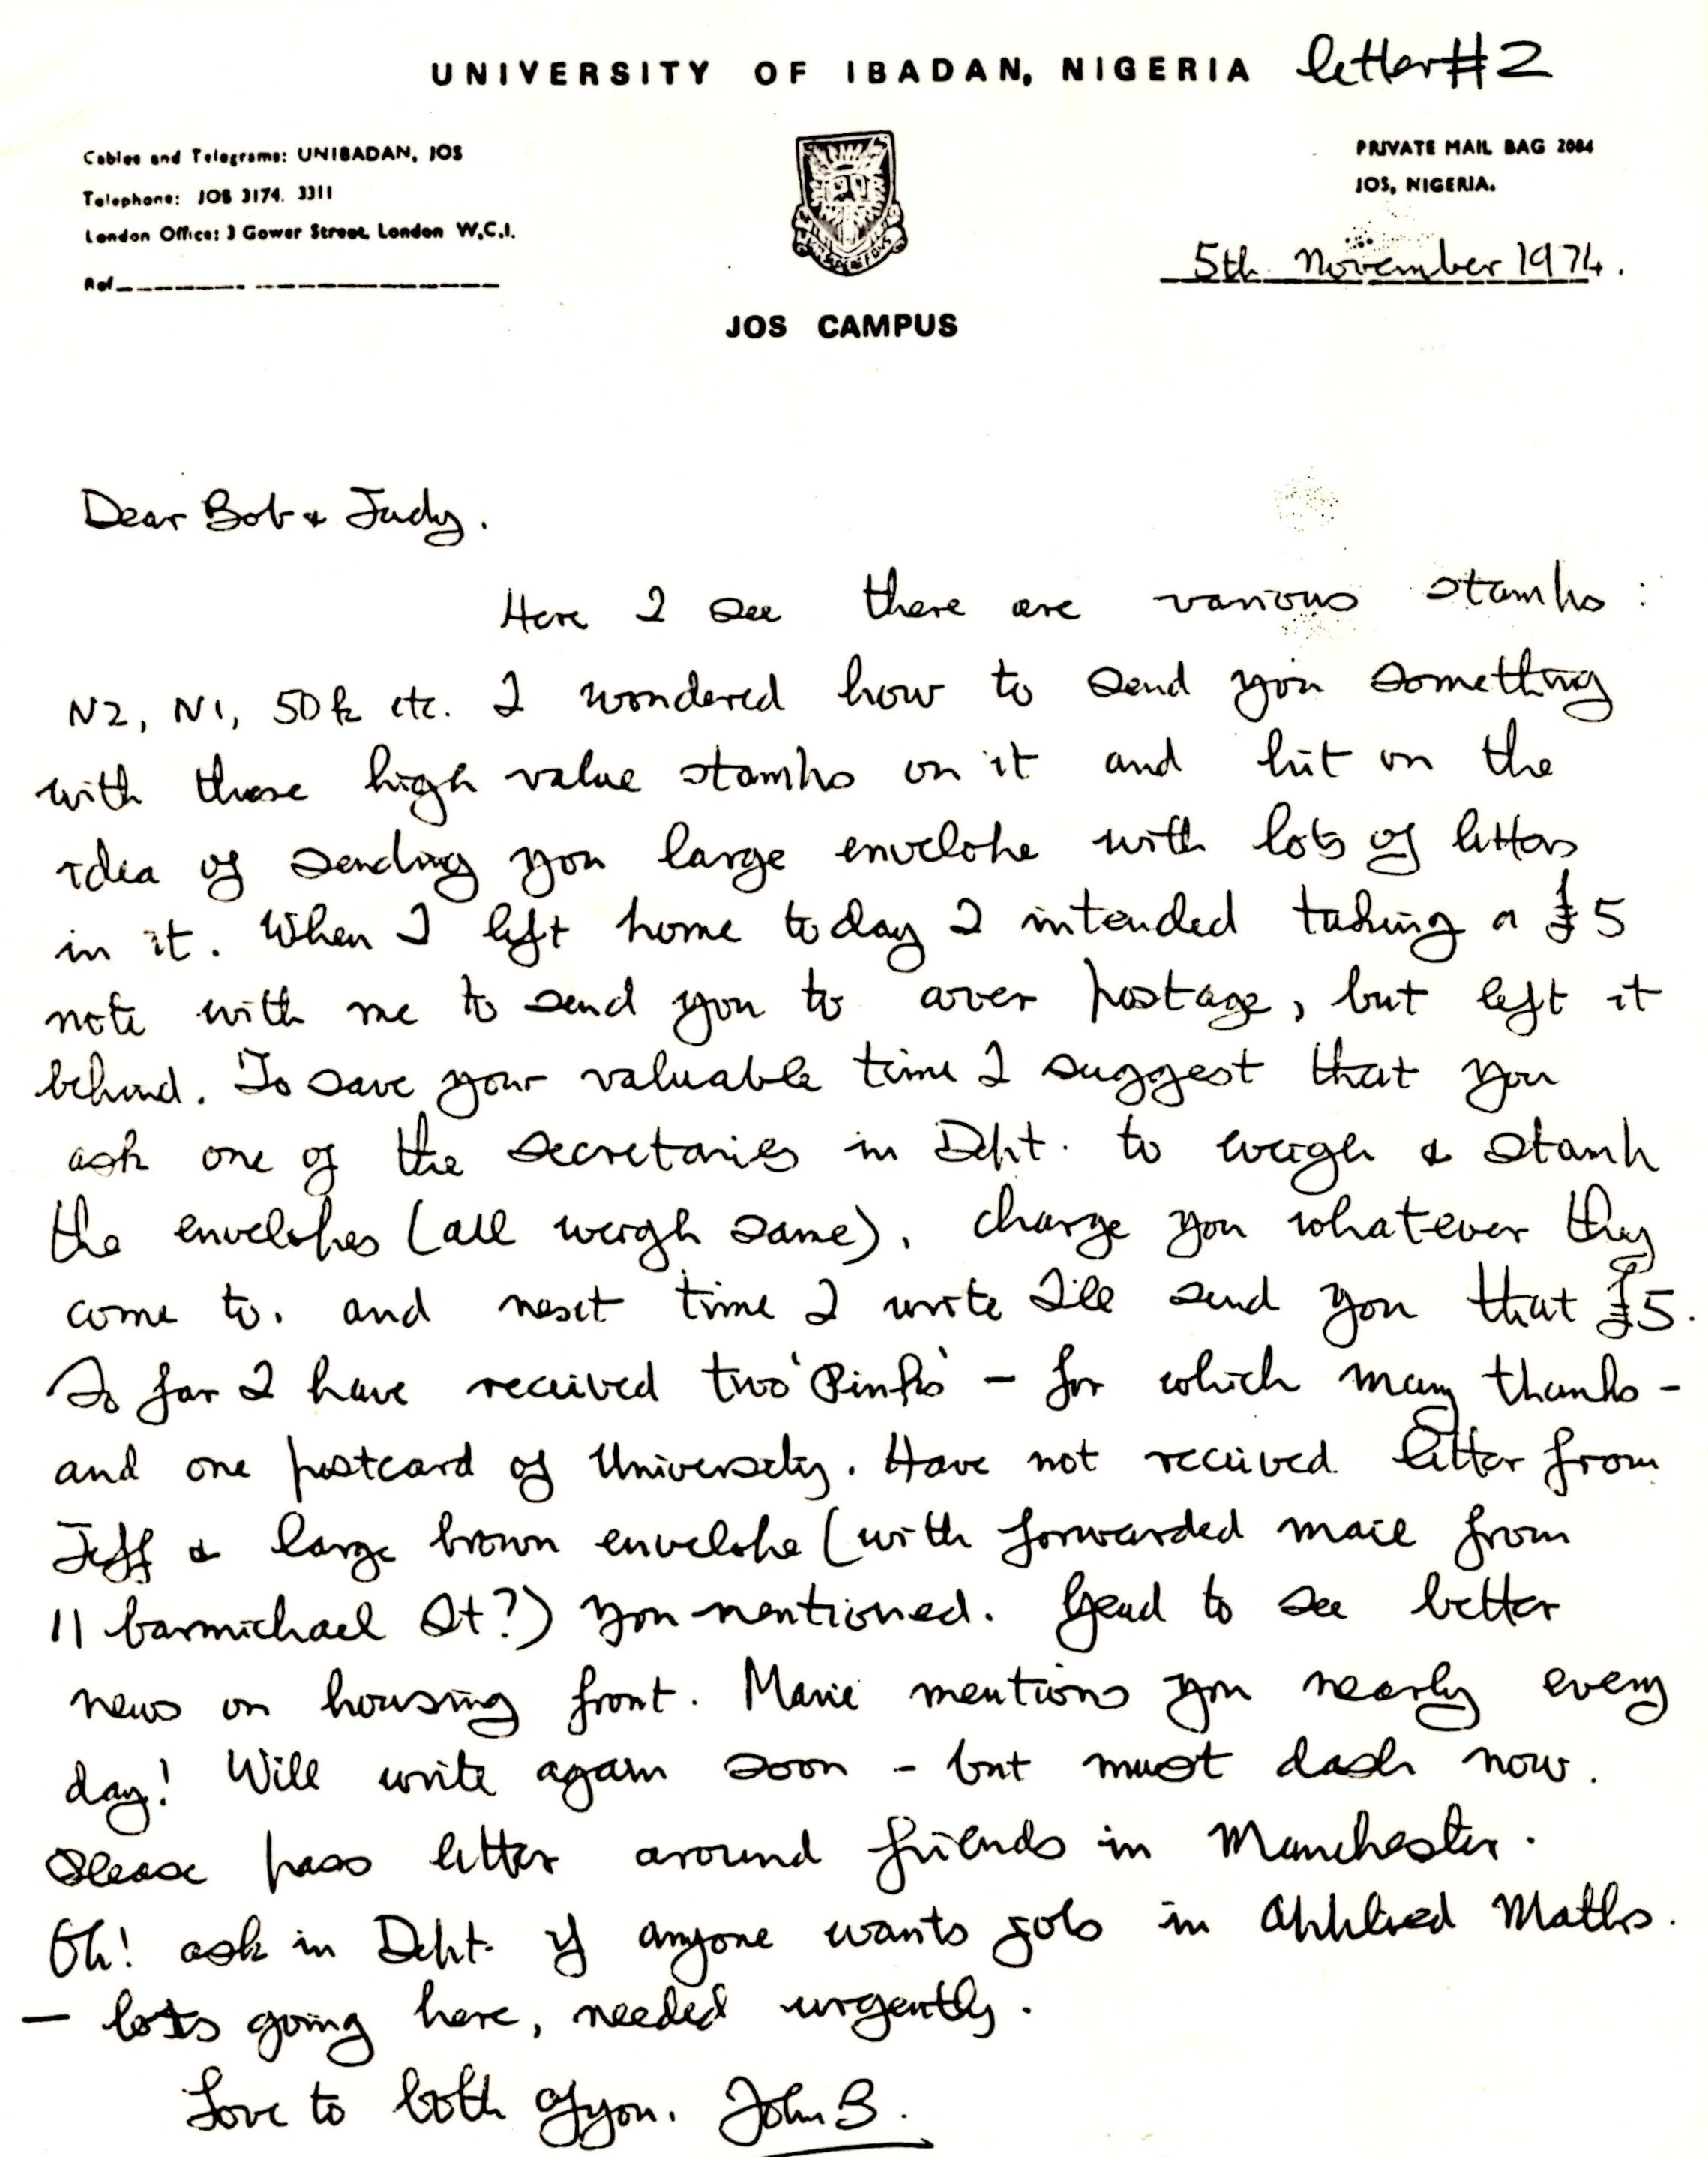 UNIVERSITY OF IBADAN, NIGERIA letter #2
Cables and Telegrams: UNIBADAN, JOS
Telephone: JOS 3174, 3311
London Office: 3 Gower Street, London W.C.1.
Ref
PRIVATE MAIL BAG 2084
JOS, NIGERIA.
5th November 1974.
JOS CAMPUS
Dear Bob & Judy.
Here I see there are various stamps:
N2, N1, 50k etc. I wondered how to send you something
with these high value stamps on it and hit on the
idea of sending you large envelope with lots of letters
in it. When I left home today I intended taking a £5
note with me to send you to cover postage, but left it
behind. To save your valuable time I suggest that you
ask one of the secretaries in Dept. to weigh & stamp
the envelopes (all weigh same), charge you whatever they
come to, and next time I write I'll send you that £5.
So far I have received two 'Pinks' - for which many thanks -
and one postcard of University. Have not received letter from
Jeff & large brown envelope (with forwarded mail from
11 Carmichael St?) you mentioned. Glad to see better
news on housing front. Marie mentions you nearly every
day! Will write again soon - but must dash now.
Please pass letter around friends in Manchester.
Oh! ask in Dept. if anyone wants job in Applied Maths.
- lots going here, needed urgently.
Love to both of you. John B.